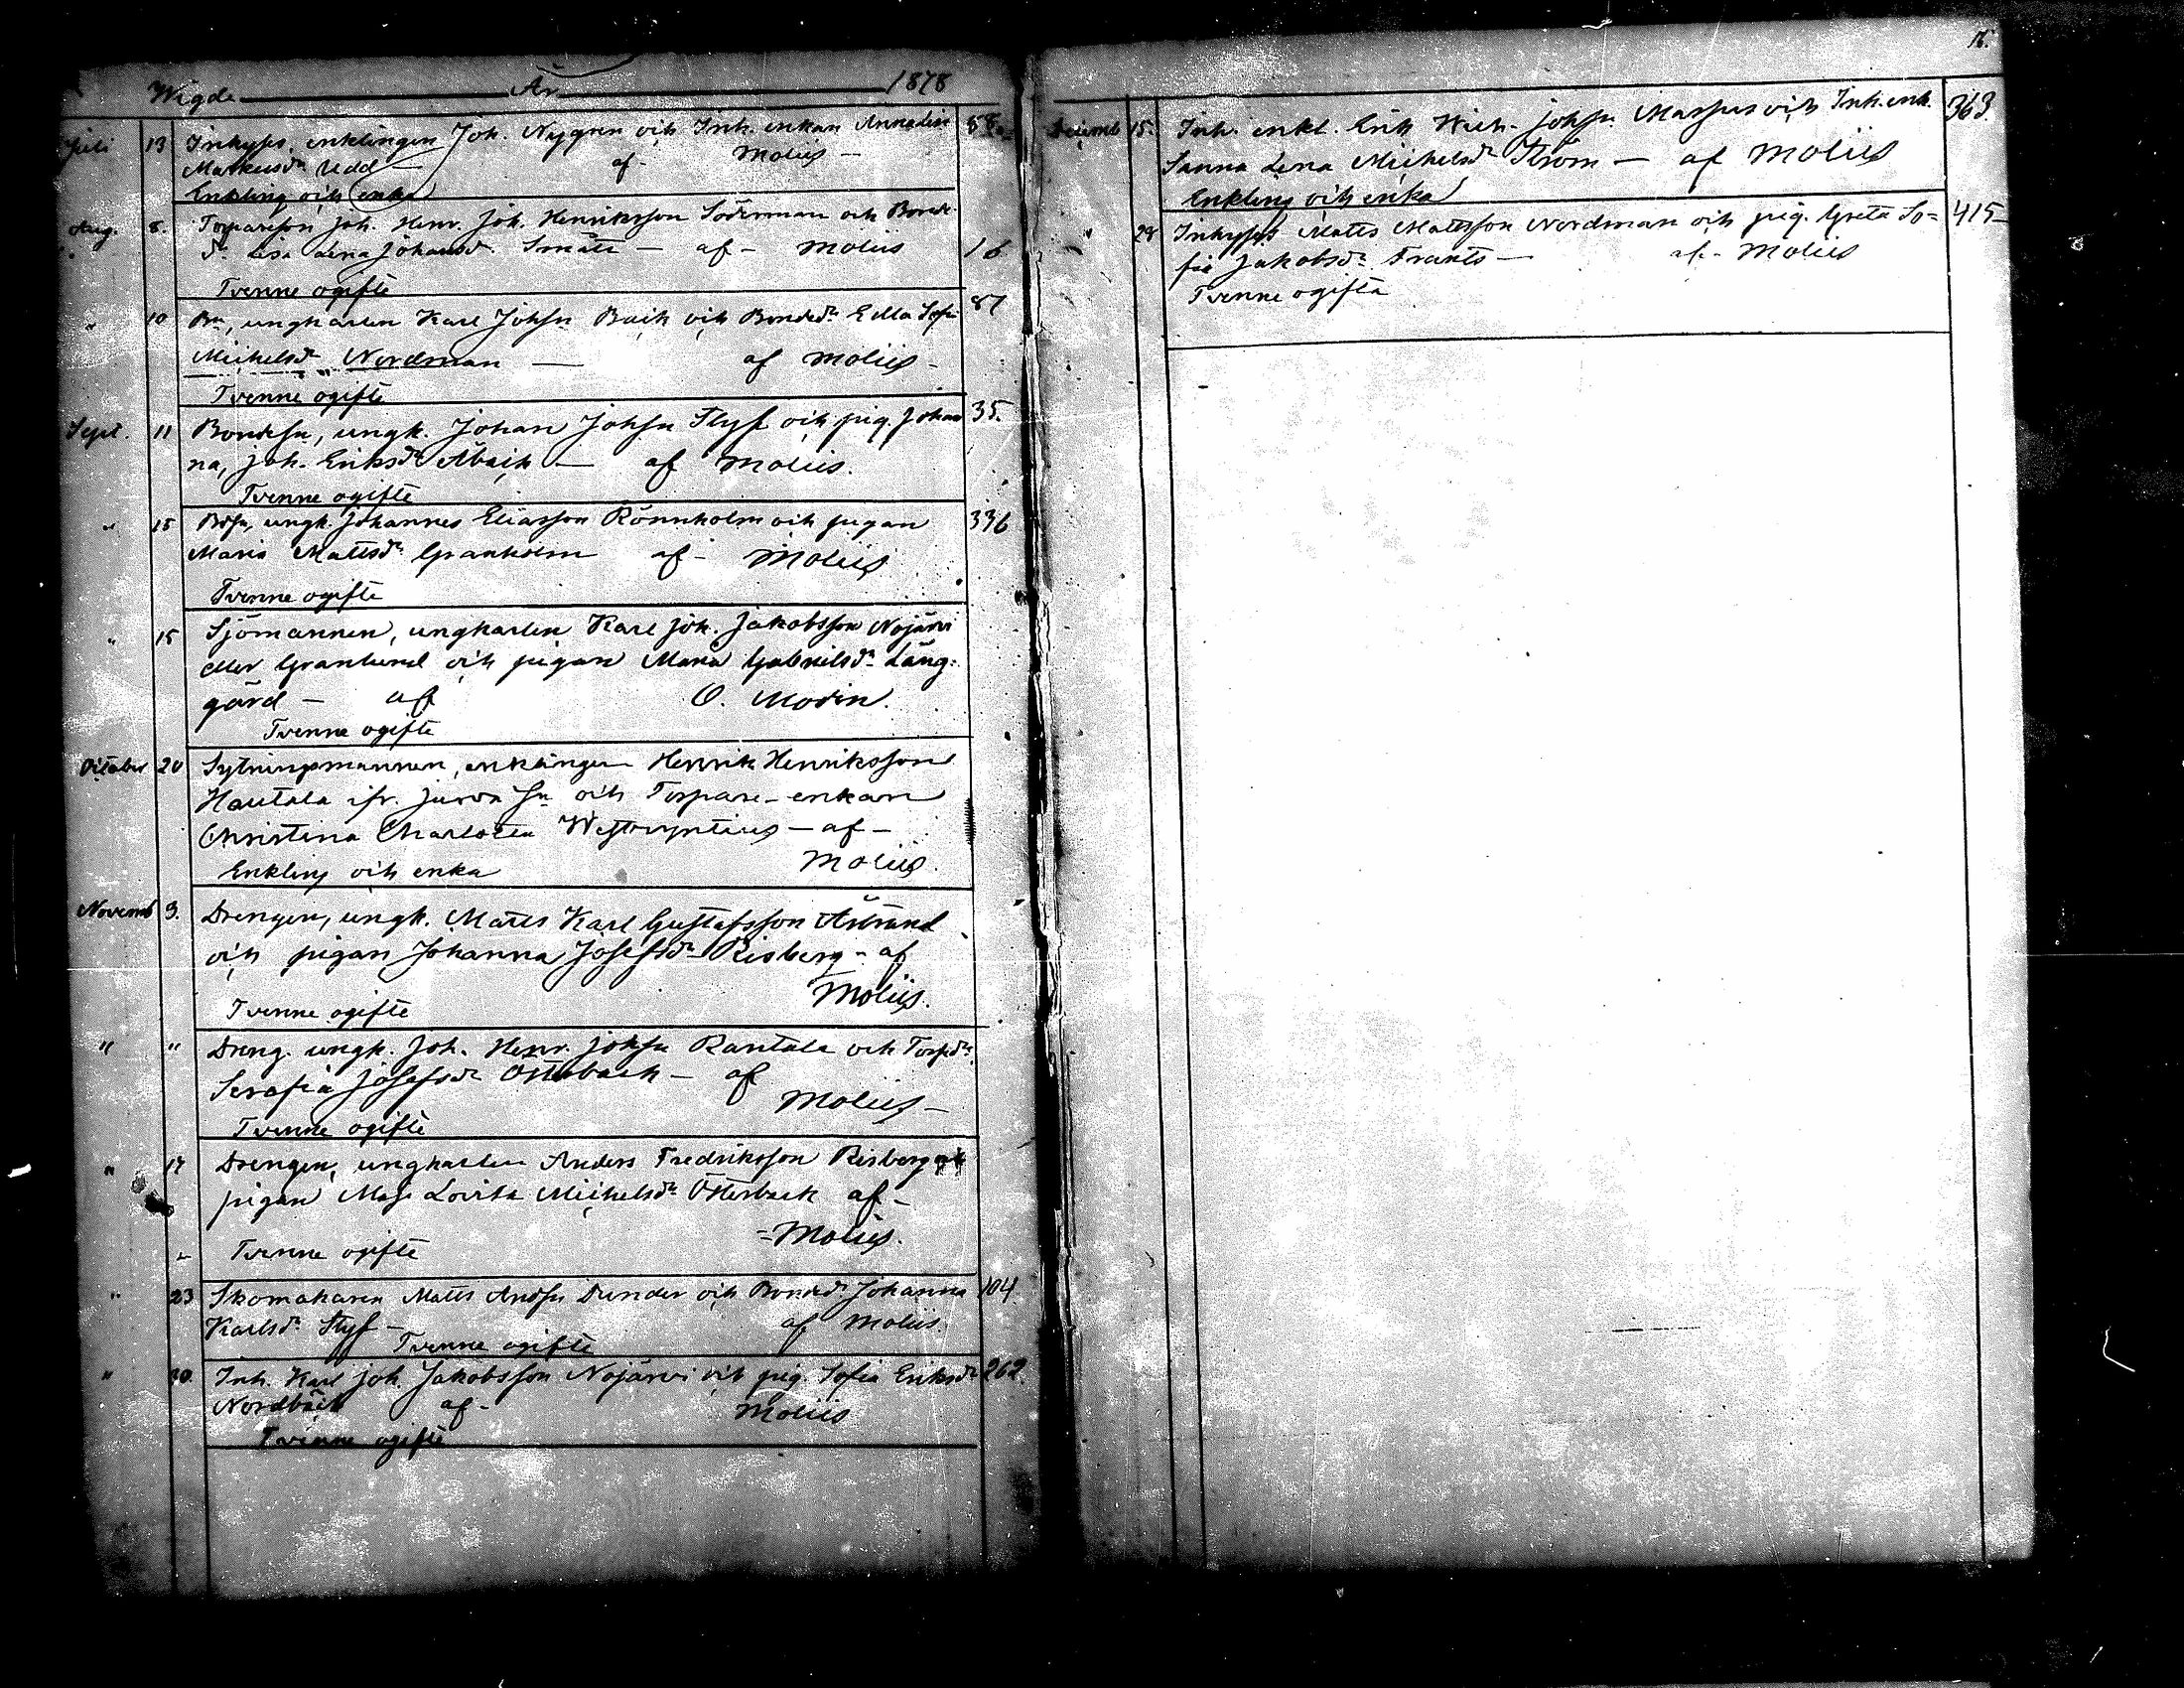 Wigde År 1878
Juli 13 Inhyses, enklingen Joh. Nygren och Inh. enkan Annalisa 58
Markusdr Udd af Moliis
Enkling och enka
Aug. 8. Torpareson Joh. Henr. Joh. Henriksson Söderman och Bonde
dr Lisa Lena Johansdr Smäts af Moliis 16
Tvenne ogifte
" 10 Bn, ungkarlen Karl Johsn Back och Bondedr Edla Sofia 87
Michelsdr Nordman af Moliis
Tvenne ogifte
Sept. 11 Bondesn, ungk. Johan Johsn Styf och pig. Johan 35.
na, Joh. Eriksdr Åback af Moliis.
Tvenne ogifte
" 15 Bdsn, ungk. Johannes Eliasson Rönnholm och pigan 336
Maria Mattsdr Granholm af Moliis
Tvenne ogifte
" 15 Sjömannen, ungkarlen Karl Joh. Jakobsson Nojärvi
eller Granlund och pigan Maria Gabrielsdr Lång-
gård af O. Modin.
Tvenne ogifte
October 20 Sytningsmannen, enklingen Henrik Henriksson
Hautala ifr. Jurva sn och Torpare-enkan
Christina Charlotta af
Enkling och enka Moliis.
Novemb 3. Drengen, ungk. Matts Karl Gustafsson Åstrand
och pigan Johanna Josefsdr Risberg - af
Moliis.
Tvenne ogifte
" " Dreng. ungk. Joh. Henr. Johsn Rantala och Torpdr
Serafia Josefsdr Österback af
Moliis
Tvenne ogifte
" 17 Drengen, ungkarlen Anders Fredriksson Risberg och
pigan Maja Lovisa Michelsdr Österback af
Moliis.
Tvenne ogifte
" 23 Skomakaren Matts Andsn Dunder och Bondedr Johanna 104
Karlsdr Styf af Moliis.
Tvenne ogifte
" 30. Inh. Karl Joh. Jakobsson Nojärvi och pig. Sofia Eriksdr 262.
Nordbäck af Moliis
Tvenne ogifte
Decemb 15. Inh. enkl. Erik Wilh. Johsn Massus och Inh. enk. 363.
Sanna Lena Michelsdr Ström af Moliis
Enkling och enka
" 28 Inhyses Matts Mattsson Nordman och pig. Greta So- 415
fia Jakobsdr Frants af Moliis
Tvenne ogifta